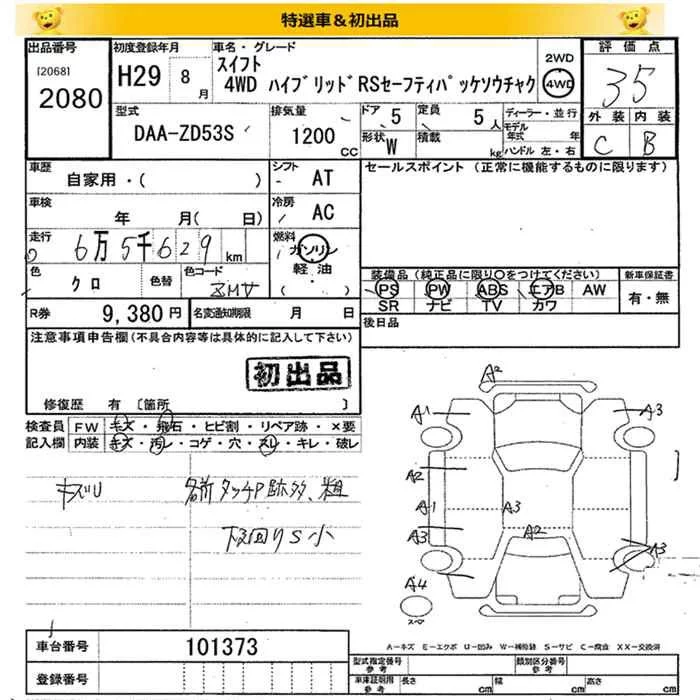 特選車＆初出品
出品番号
[2068]
2080
初度登録年月
H29 8月
車名・グレード
スイフト
4WD ハイブリッドRSセーフティパッケソウチャク
2WD
4WD
評価点
3.5
外装 内装
C B
型式
DAA-ZD53S
排気量
1200 CC
ドア 5
形状 W
定員 5人
積載 kg
ディーラー・並行
モデル
年式 年
ハンドル 左・右
車歴
自家用・( )
シフト
AT
セールスポイント (正常に機能するものに限ります)
車検
年 月( 日)
冷房
AC
走行
6万5千629km
燃料
ガソリン
軽油・
( )
色
クロ
色替
色コード
ZMV
装備品(純正品に限り○をつけてください)
PS PW ABS エアB AW
SR ナビ TV カワ
新車保証書
有・無
R券
9,380円
名変通知期限 月 日
後日品
注意事項申告欄(不具合内容等は具体的に記入して下さい)
初出品
修復歴 有 〔箇所 〕
検査員
記入欄
FW キズ・飛石・ヒビ割・リペア跡・×要
内装 キズ・汚レ・コゲ・穴・スレ・キレ・破レ
キズU 各所タッチP跡多、粗
下回りS小
A2
A1 A3
A2
A1 A3
A3 A2 A3
A4
スペア
A－キズ E－エクボ U－凹み W－補修跡 S－サビ C－腐食 XX－交換済
車台番号 101373
登録番号
型式指定番号
参考
類別区分番号
参考
車庫証明用
参考
長さ cm 幅 cm 高さ cm